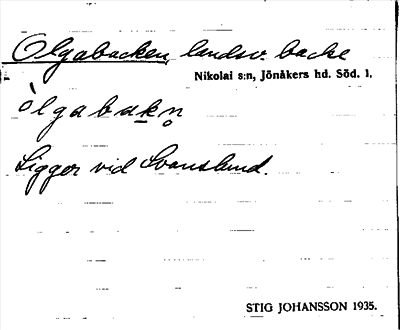 Olgabacken, landsv. backe
Nikolai s:n, Jönåkers hd. Söd. l.
òlgabakn̥
Ligger vid Svanslund.
STIG JOHANSSON 1935.